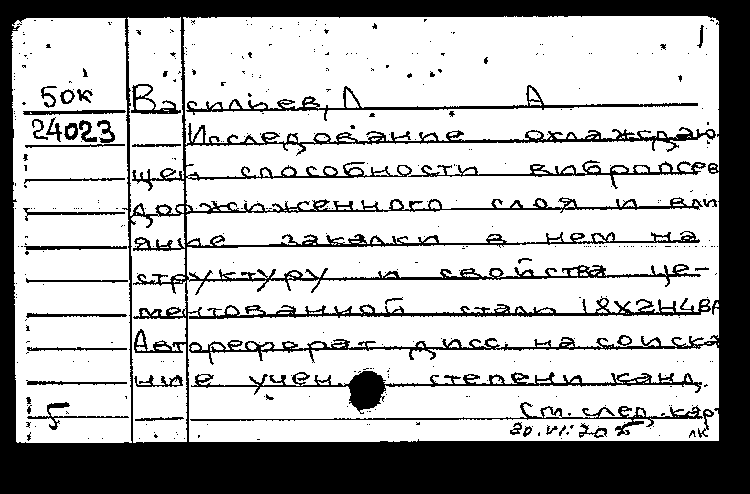 50к Васильев, Л А
24023 Исследование охлаждаю-
щей способности вибропсев
доожиженного слоя и вли
яние закалки в нем на
структуру и свойства це-
ментованной стали 18Х2Н4ВА
Автореферат дисс. на соиска
ние учен. степени канд.
5 См. след. карт
лк